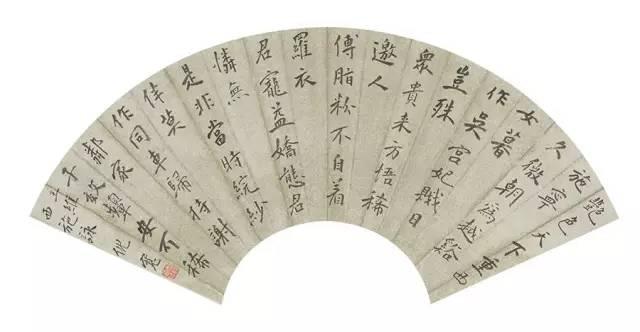 艷色天下重西
施寧
久微朝為越谿
女暮
作吳宮妃賤日
豈殊
眾貴来方悟稀
邀人
傅脂粉不自着
羅衣
君寵益嬌態君
憐無
是非當時綄紗
伴莫
作同車歸持謝
鄰家
子效顰安可稀
維
西施詠